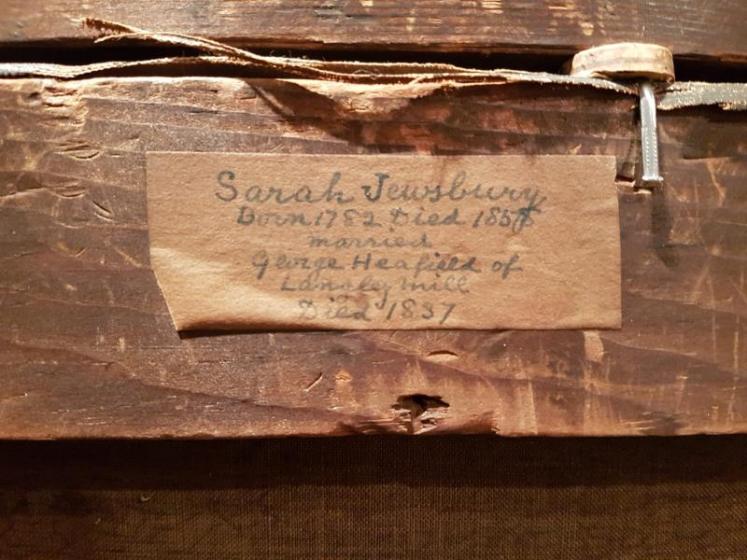 Sarah Jewsbury
Born 1782 Died
married
George Heafield of
Langley mill
Died 1837